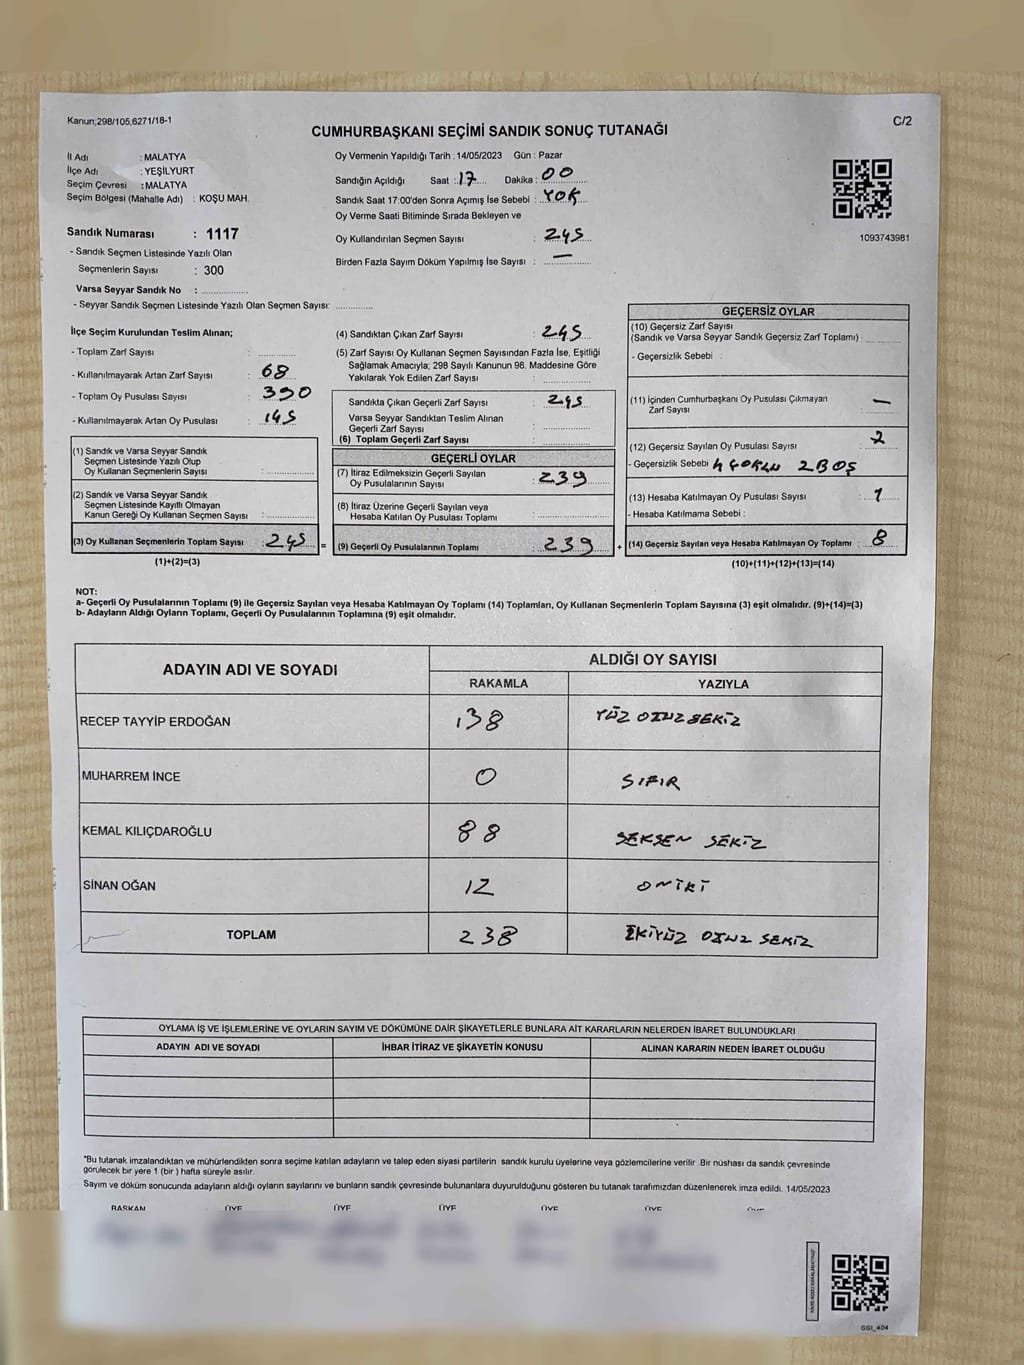 Kanun;298/105,6271/18-1
C/2
CUMHURBAŞKANI SEÇİMİ SANDIK SONUÇ TUTANAĞI
İl Adı : MALATYA
İlçe Adı : YEŞİLYURT
Seçim Çevresi : MALATYA
Seçim Bölgesi (Mahalle Adı) : KOŞU MAH.
Sandık Numarası : 1117
- Sandık Seçmen Listesinde Yazılı Olan
Seçmenlerin Sayısı : 300
Varsa Seyyar Sandık No :
- Seyyar Sandık Seçmen Listesinde Yazılı Olan Seçmen Sayısı:
Oy Vermenin Yapıldığı Tarih : 14/05/2023 Gün : Pazar
Sandığın Açıldığı Saat : 17 Dakika : 00
Sandık Saat 17:00'den Sonra Açımış İse Sebebi : YOK
Oy Verme Saati Bitiminde Sırada Bekleyen ve
Oy Kullandırılan Seçmen Sayısı : 245
Birden Fazla Sayım Döküm Yapılmış İse Sayısı : —
1093743981
İlçe Seçim Kurulundan Teslim Alınan;
- Toplam Zarf Sayısı :
- Kullanılmayarak Artan Zarf Sayısı : 68
- Toplam Oy Pusulası Sayısı : 390
- Kullanılmayarak Artan Oy Pusulası : 145
(1) Sandık ve Varsa Seyyar Sandık
Seçmen Listesinde Yazılı Olup
Oy Kullanan Seçmenlerin Sayısı :
(2) Sandık ve Varsa Seyyar Sandık
Seçmen Listesinde Kayıtlı Olmayan
Kanun Gereği Oy Kullanan Seçmen Sayısı :
(3) Oy Kullanan Seçmenlerin Toplam Sayısı : 245
(1)+(2)=(3)
=
(4) Sandıktan Çıkan Zarf Sayısı : 245
(5) Zarf Sayısı Oy Kullanan Seçmen Sayısından Fazla İse, Eşitliği
Sağlamak Amacıyla; 298 Sayılı Kanunun 98. Maddesine Göre
Yakılarak Yok Edilen Zarf Sayısı :
Sandıkta Çıkan Geçerli Zarf Sayısı : 245
Varsa Seyyar Sandıktan Teslim Alınan
Geçerli Zarf Sayısı :
(6) Toplam Geçerli Zarf Sayısı :
GEÇERLİ OYLAR
(7) İtiraz Edilmeksizin Geçerli Sayılan
Oy Pusulalarının Sayısı : 239
(8) İtiraz Üzerine Geçerli Sayılan veya
Hesaba Katılan Oy Pusulası Toplamı :
(9) Geçerli Oy Pusulalarının Toplamı : 239
+
GEÇERSİZ OYLAR
(10) Geçersiz Zarf Sayısı
(Sandık ve Varsa Seyyar Sandık Geçersiz Zarf Toplamı) :
- Geçersizlik Sebebi :
(11) İçinden Cumhurbaşkanı Oy Pusulası Çıkmayan
Zarf Sayısı : —
(12) Geçersiz Sayılan Oy Pusulası Sayısı : 2
- Geçersizlik Sebebi 4 ÇOKLU 2 BOŞ
(13) Hesaba Katılmayan Oy Pusulası Sayısı : 1
- Hesaba Katılmama Sebebi :
(14) Geçersiz Sayılan veya Hesaba Katılmayan Oy Toplamı : 8
(10)+(11)+(12)+(13)=(14)
NOT:
a- Geçerli Oy Pusulalarının Toplamı (9) ile Geçersiz Sayılan veya Hesaba Katılmayan Oy Toplamı (14) Toplamları, Oy Kullanan Seçmenlerin Toplam Sayısına (3) eşit olmalıdır. (9)+(14)=(3)
b- Adayların Aldığı Oyların Toplamı, Geçerli Oy Pusulalarının Toplamına (9) eşit olmalıdır.
ADAYIN ADI VE SOYADI
ALDIĞI OY SAYISI
RAKAMLA YAZIYLA
RECEP TAYYİP ERDOĞAN 138 YÜZ OTUZ SEKİZ
MUHARREM İNCE 0 SIFIR
KEMAL KILIÇDAROĞLU 88 SEKSEN SEKİZ
SİNAN OĞAN 12 ONİKİ
TOPLAM 238 İKİYÜZ OTUZ SEKİZ
OYLAMA İŞ VE İŞLEMLERİNE VE OYLARIN SAYIM VE DÖKÜMÜNE DAİR ŞİKAYETLERLE BUNLARA AİT KARARLARIN NELERDEN İBARET BULUNDUKLARI
ADAYIN ADI VE SOYADI İHBAR İTİRAZ VE ŞİKAYETİN KONUSU ALINAN KARARIN NEDEN İBARET OLDUĞU
*Bu tutanak imzalandıktan ve mühürlendikten sonra seçime katılan adayların ve talep eden siyasi partilerin sandık kurulu üyelerine veya gözlemcilerine verilir .Bir nüshası da sandık çevresinde
görülecek bir yere 1 (bir ) hafta süreyle asılır.
Sayım ve döküm sonucunda adayların aldığı oyların sayılarını ve bunların sandık çevresinde bulunanlara duyurulduğunu gösteren bu tutanak tarafımızdan düzenlenerek imza edildi. 14/05/2023
BAŞKAN ÜYE ÜYE ÜYE ÜYE ÜYE ÜYE